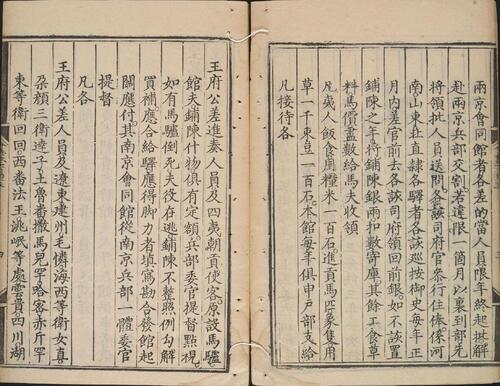 兩京會同館者各差的當人員限年終起批解
赴兩京兵部交割若違限一箇月以裏到部先
將領批人員送問各該司府官叅行住俸係河
南山東北直隸各驛者各該巡按御史每年正
月內差官前去各該司府領回前銀如不該置
鋪陳之年將鋪陳銀兩扣數寄庫其餘工食草
料馬價盡數給與馬夫收領
凡夷人飯食用糧米一百石進貢馬匹象隻用
草一千束豆一百石本館每年俱申戶部支給
凡接待各
王府公差進奏人員及四夷朝貢使客原設馬驢
館夫鋪陳什物俱有定額兵部委官提督點視
如有馬驢倒死夫役在逃鋪陳不整照例勾解
買補應合給驛應得脚力者填寫勘合發館起
關應付其南京會同館從南京兵部一體委官
提督
凡各
王府公差人員及遼東建州毛憐海西等衛女直
朶顏三衛達子土魯番撒馬兒罕哈密赤斤罕
東等衛回回西番法王洮岷等處雲貴四川湖